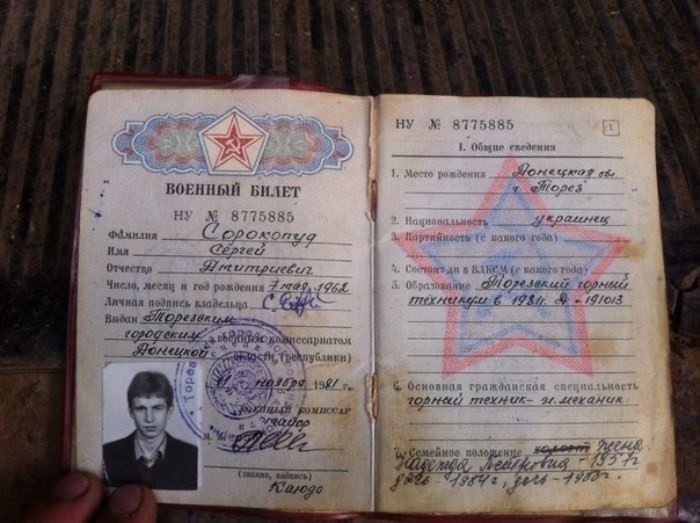 ВОЕННЫЙ БИЛЕТ
НУ № 8775885
Фамилия Сорокопуд
Имя Сергей
Отчество Дмитриевич
Число, месяц и год рождения 7 мая 1962
Личная подпись владельца
Выдан Торезским
городским военным комиссариатом
Донецкой области (республики)
ноября 1981 г.
Военный комиссар
майор
М. П.
(звание, подпись)
НУ № 8775885
1
I. Общие сведения
1. Место рождения Донецкая обл
г. Торез
2. Национальность украинец
3. Партийность (с какого года)
4. Состоял ли в ВЛКСМ (с какого года)
5. Образование Торезский горный
техникум в 1981
6. Основная гражданская специальность
горный техник-эл. механик
7. Семейное положение холост жена
1957 г
дочь - 1984 г, дочь -